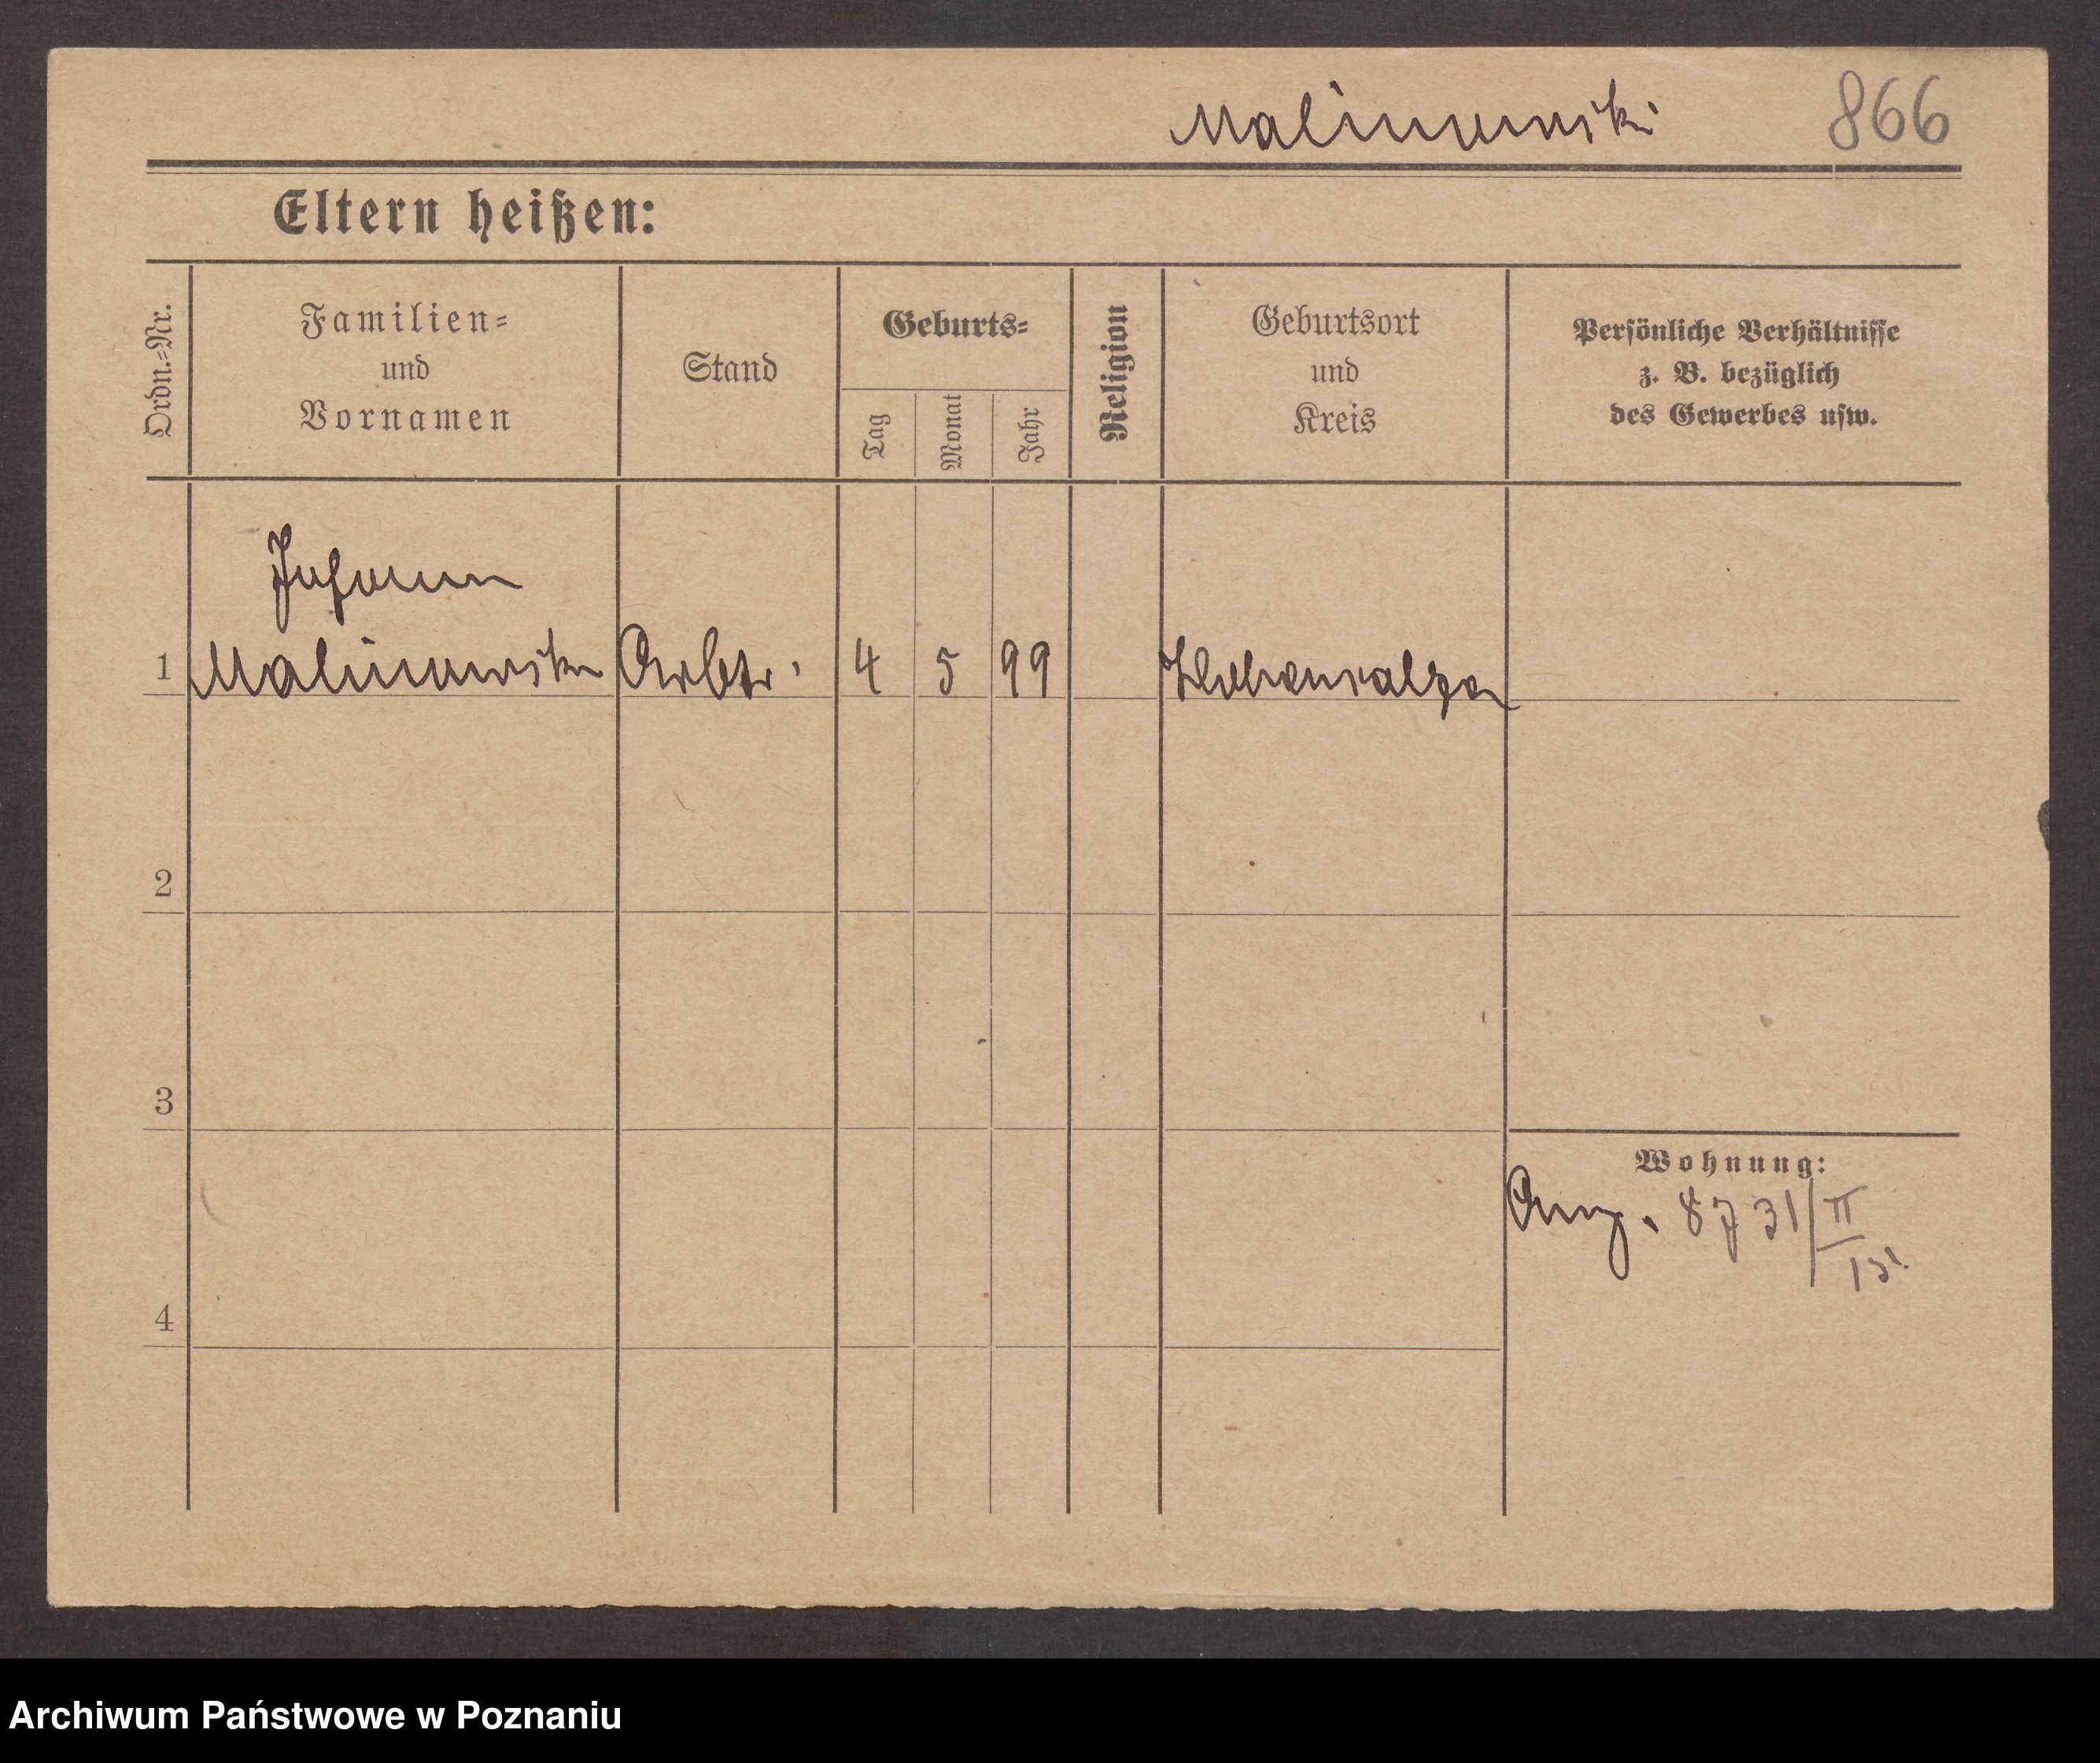 Malinowski 866
Eltern heißen:
Ordn.=Nr.
Familien=
und
Vornamen
Stand
Geburts=
Tag
Monat
Jahr
Religion
Geburtsort
und
Kreis
Persönliche Verhältnisse
z. B. bezüglich
des Gewerbes usw.
Johann
1 Malinowski Arbtr. 4 5 99 Hohensalza
2
3
Wohnung:
Anz. 8731/II
15.
4
Archiwum Państwowe w Poznaniu